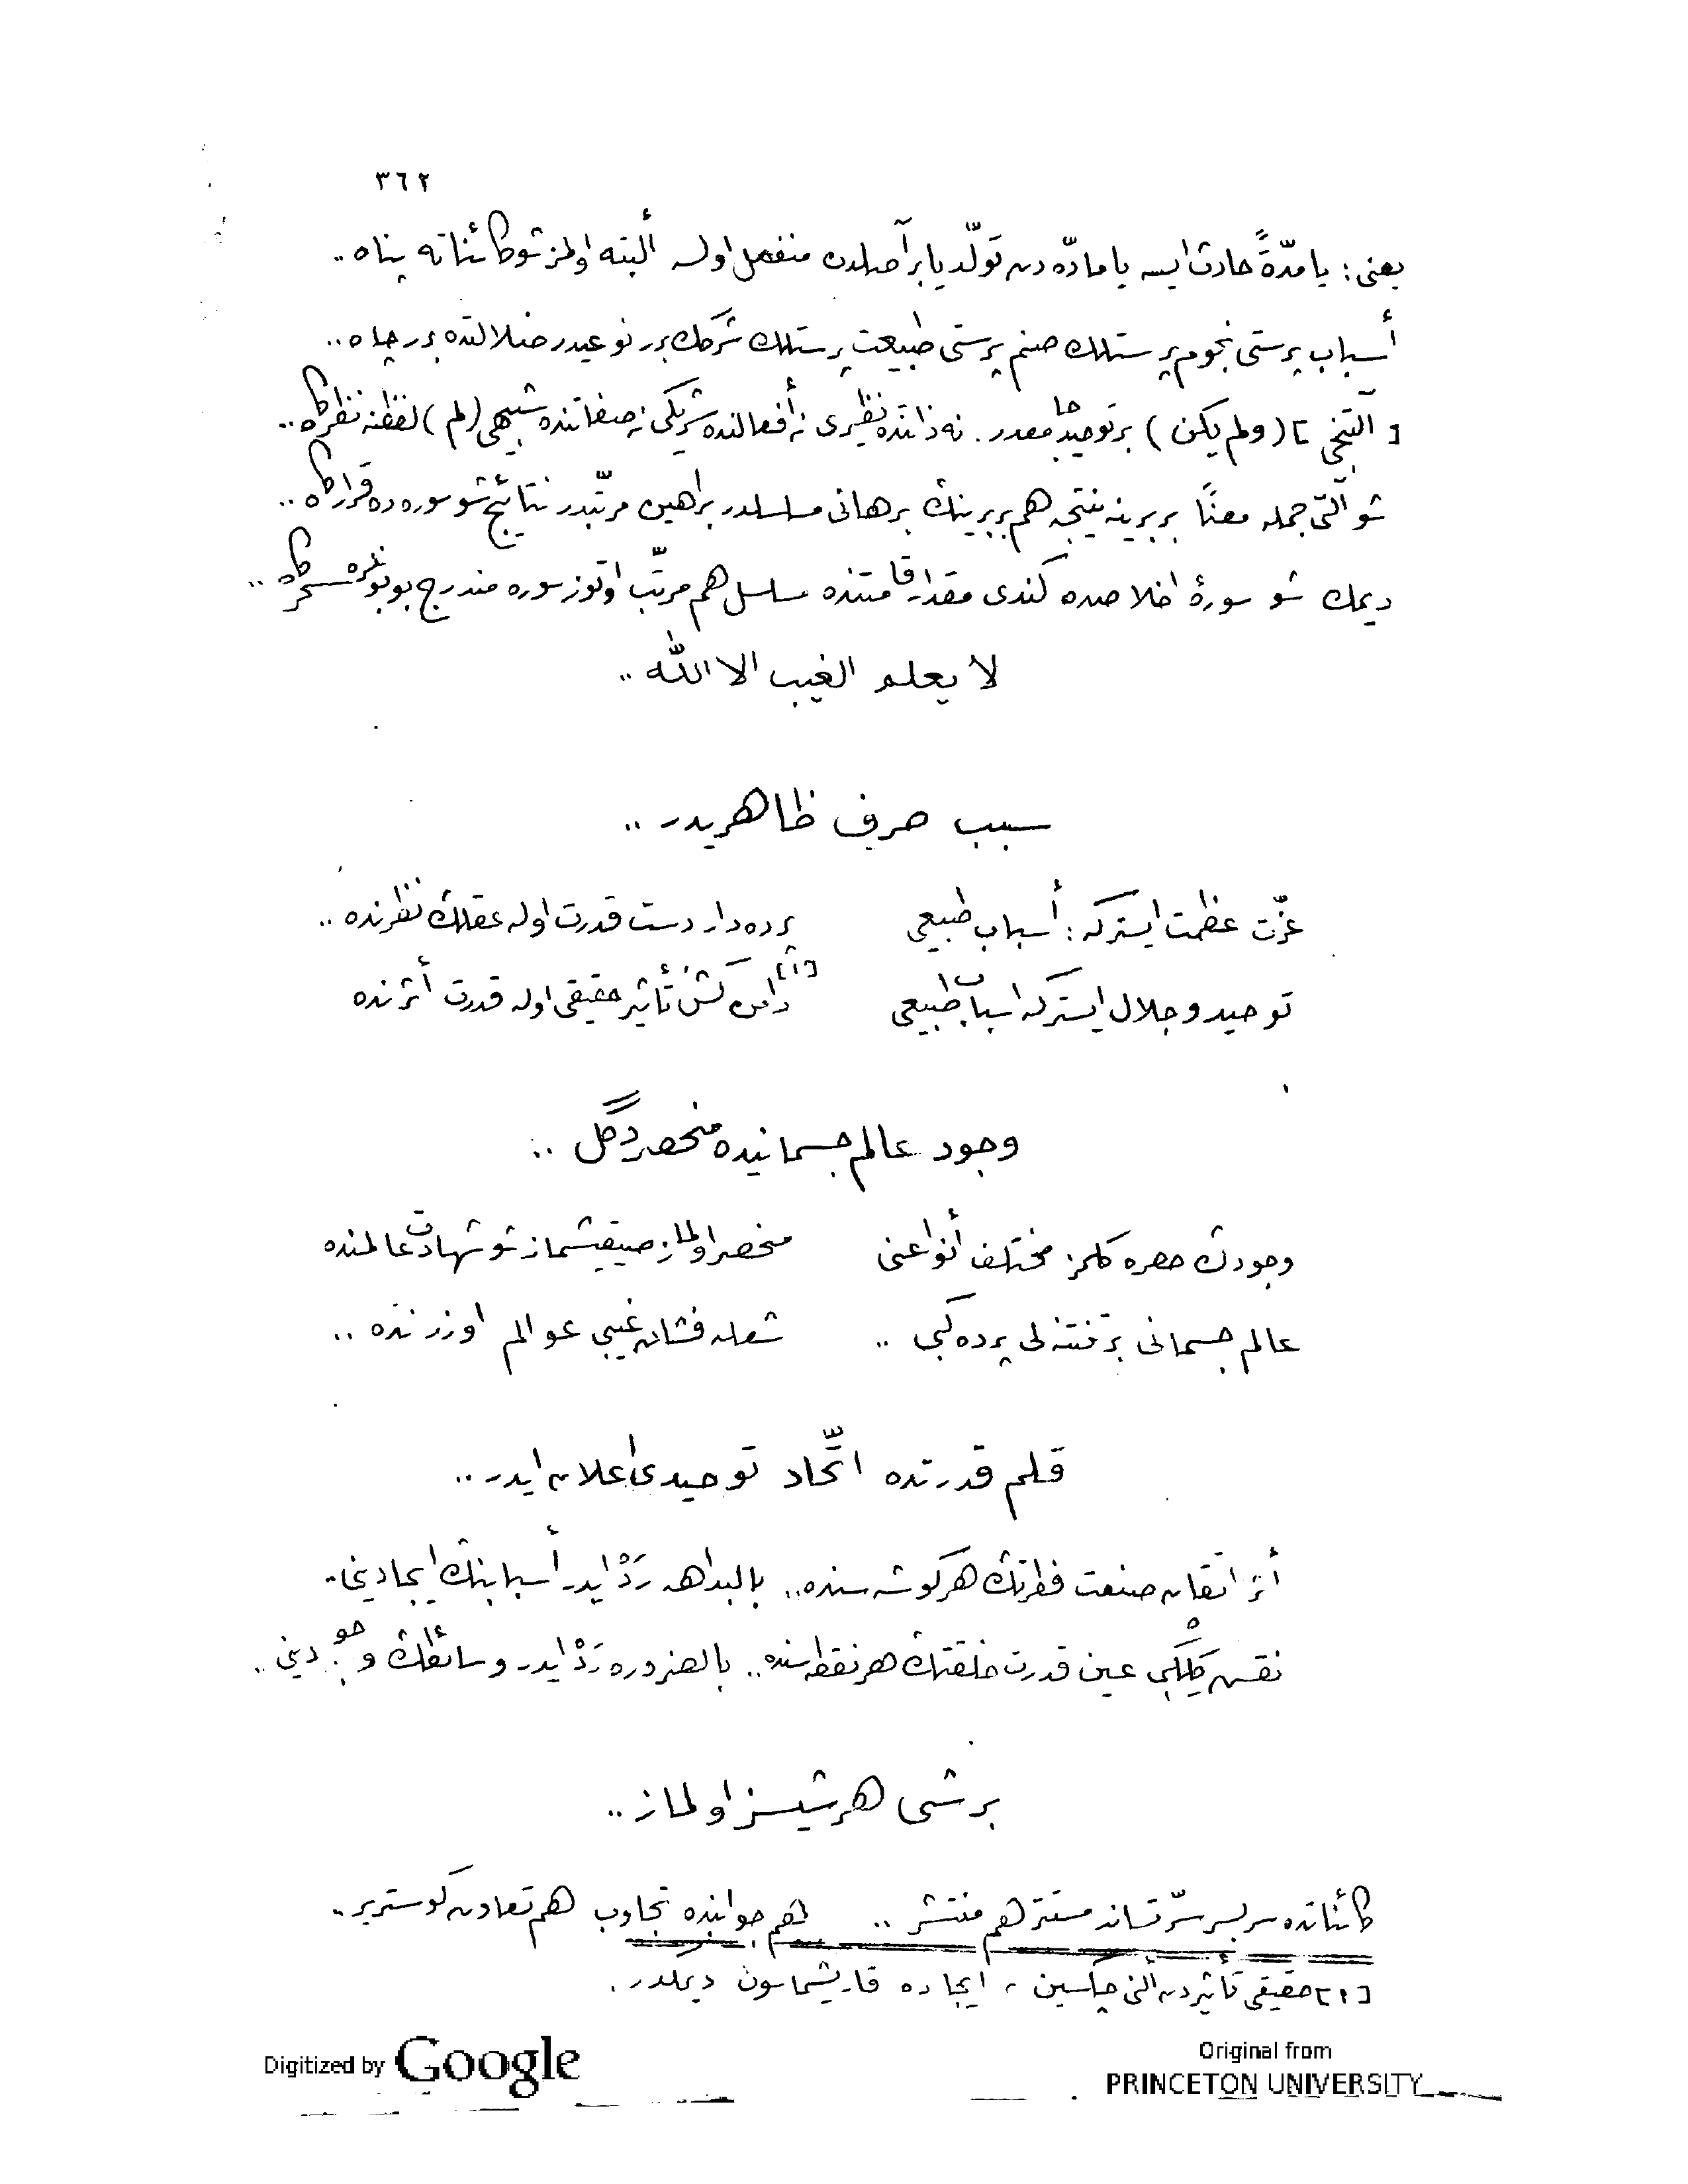 ٣٦٢
يعنى : يا مدّةً حادث ايسه يا مادّه دن تولّد يا بر أصلدن منفصل اولسه ألبته اولمز شو كائناته پناه ..
أسباب پرستى نجوم پرستلك صنم پرستى طبيعت پرستلك شركك برر نوعيدر ضلالتده برر چاه ..
[ آلتنجى ] (ولم يكن) بر توحيد جامعدر . نه ذاتنده نظيرى نه أفعالنده شريكى نه صفاتنده شبيهى (لم) لفظنه نظركاه ..
شو آلتى جمله معنًا بربرينه نتيجه هم بربرينك برهانى مسلسلدر براهين مرتّبدر نتائج شو سوره ده قراركاه ..
ديمك شو سورۀ اخلاصده كندى مقدار قامتنده مسلسل هم مرتّب اوتوز سوره مندرج بو بونلره سحركاه ..
لا يعلم الغيب الا الله ..
سبب صرف ظاهريدر ..
عزّت عظمت ايستركه : أسباب طبيعى پرده دار دست قدرت اوله عقلك نظرنده ..
توحيد و جلال ايستركه اسباب طبيعى دامن كش تأثير حقيقى اوله قدرت أثرنده [١]
وجود عالم جسمانيده منحصر دگل ..
وجودك حصره كلمز مختلف أنواعنى منحصر اولماز صيقيشماز شو شهادت عالمنده
عالم جسمانى بر تنتنه لى پرده كبى .. شعله فشان غيبى عوالم اوزرنده ..
قلم قدرتده اتّحاد توحيدى اعلان ايدر ..
أثر اتقان صنعت فطرتك هر كوشه سنده .. بالبداهه ردْ ايدر أسبابنك ايجادينى ..
نقش كِلْكى عين قدرت خلقتك هر نقطه سنده .. بالضروره ردْ ايدر وسائطك وجودينى ..
بر شى هر شيسز اولماز ..
كائناتده سر بسر سرّ تساند مستتر هم منتشر .. هم جوانبده تجاوب هم تعاون كوسترير ..
[١] حقيقى تأثيردن ألنى چكسين ، ايجاده قاريشماسون ديمكدر .
Digitized by Google
Original from
PRINCETON UNIVERSITY